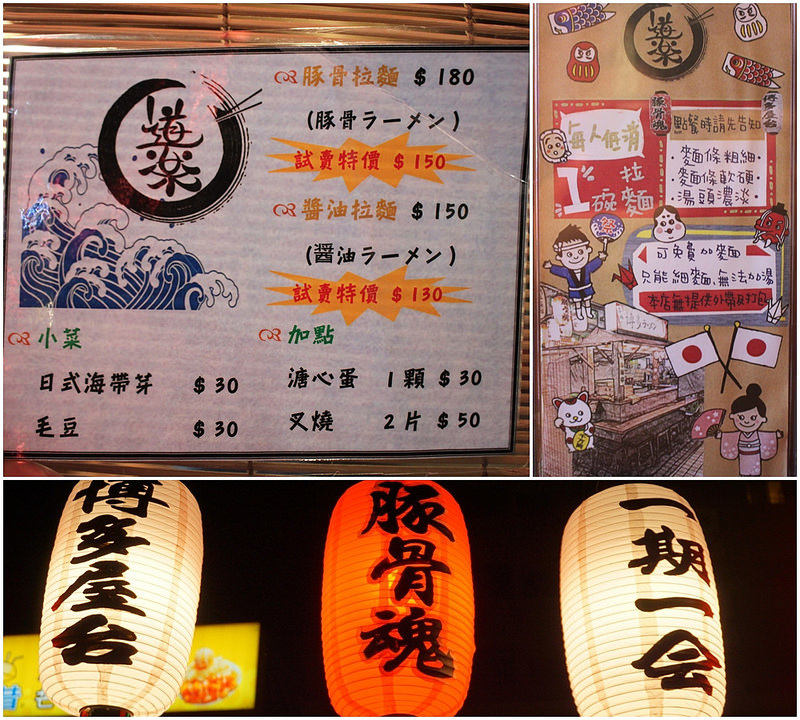 道楽
豚骨拉麵 $180
(豚骨ラーメン)
試賣特價 $150
醬油拉麵 $150
(醤油ラーメン)
試賣特價 $130
小菜
日式海帶芽 $30
毛豆 $30
加點
溏心蛋 1顆 $30
叉燒 2片 $50
道楽
豚骨魂
博多屋台
點餐時請先告知
每人低消
1碗拉麵
·麵條粗細·
·麵條軟硬·
·湯頭濃淡·
祭
可免費加麵
只能細麵、無法加湯
本店無提供外帶及打包
博多屋台
豚骨魂
一期一会